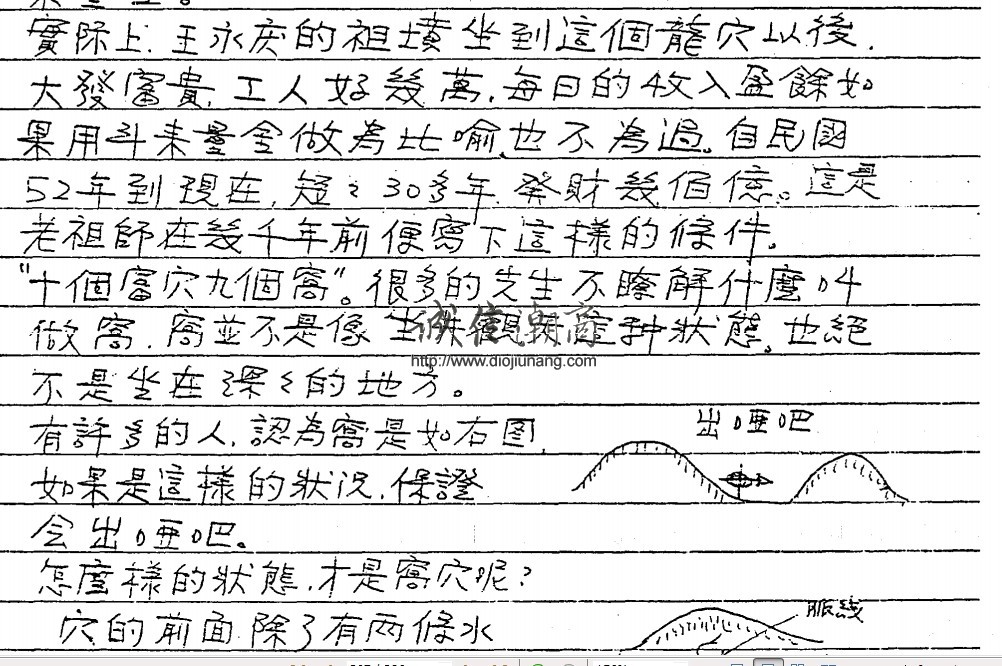 實際上.王永庆的祖墳坐到這個龍穴以後.
大發富貴,工人好幾萬,每日的收入盈餘如
果用斗来量金做為比喻,也不為過。自民國
52年到現在,短々30多年 發財幾佰億。這是
老祖師在幾千年前便寫下這樣的條件。
"十個富穴九個窩"。很多的先生不瞭解什麼叫
做窩.窩並不是像 這种狀態。也絕
誠信潮商
http://www.diojiunang.com
不是坐在深々的地方。
有許多的人,認為窩是如右图,
出啞吧
如果是這樣的狀況,保證
会出啞吧。
怎麼樣的狀態,才是窩穴呢?
脈线
穴的前面除了有两條水